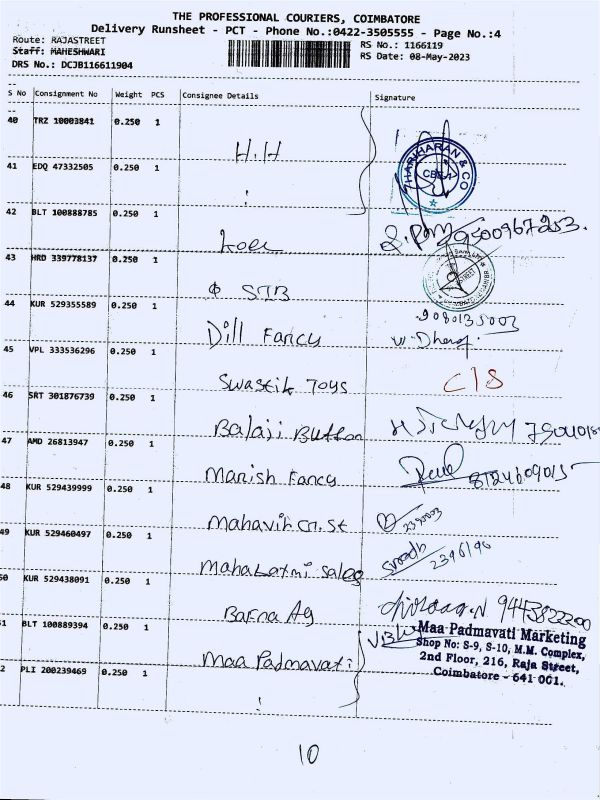 THE PROFESSIONAL COURIERS, COIMBATORE
Delivery Runsheet - PCT - Phone No.:0422-3505555 - Page No.:4
Route: RAJASTREET
Staff: MAHESHWARI
DRS No.: DCJB116611904
RS No.: 1166119
RS Date: 08-May-2023
S No Consignment No Weight PCS Consignee Details Signature
40 TRZ 10003841 0.250 1 H.H
HARIHARAN & CO
CBE-1
41 EDQ 47332505 0.250 1
42 BLT 100888785 0.250 1 9500967253.
43 HRD 339778137 0.250 1 STB
44 KUR 529355589 0.250 1 Dill Fancy 9080135003
45 VPL 333536296 0.250 1 Swastik Toys C/S
46 SRT 301876739 0.250 1 Balaji Button
47 AMD 26813947 0.250 1 Manish Fancy
48 KUR 529439999 0.250 1
49 KUR 529460497 0.250 1 MahaLaxmi Sales
50 KUR 529438091 0.250 1 Barna Ag
51 BLT 100889394 0.250 1 Maa Padmavati
Maa Padmavati Marketing
Shop No: S-9, S-10, M.M. Complex,
2nd Floor, 216, Raja Street,
Coimbatore - 641 001.
2 PLI 200239469 0.250 1
10